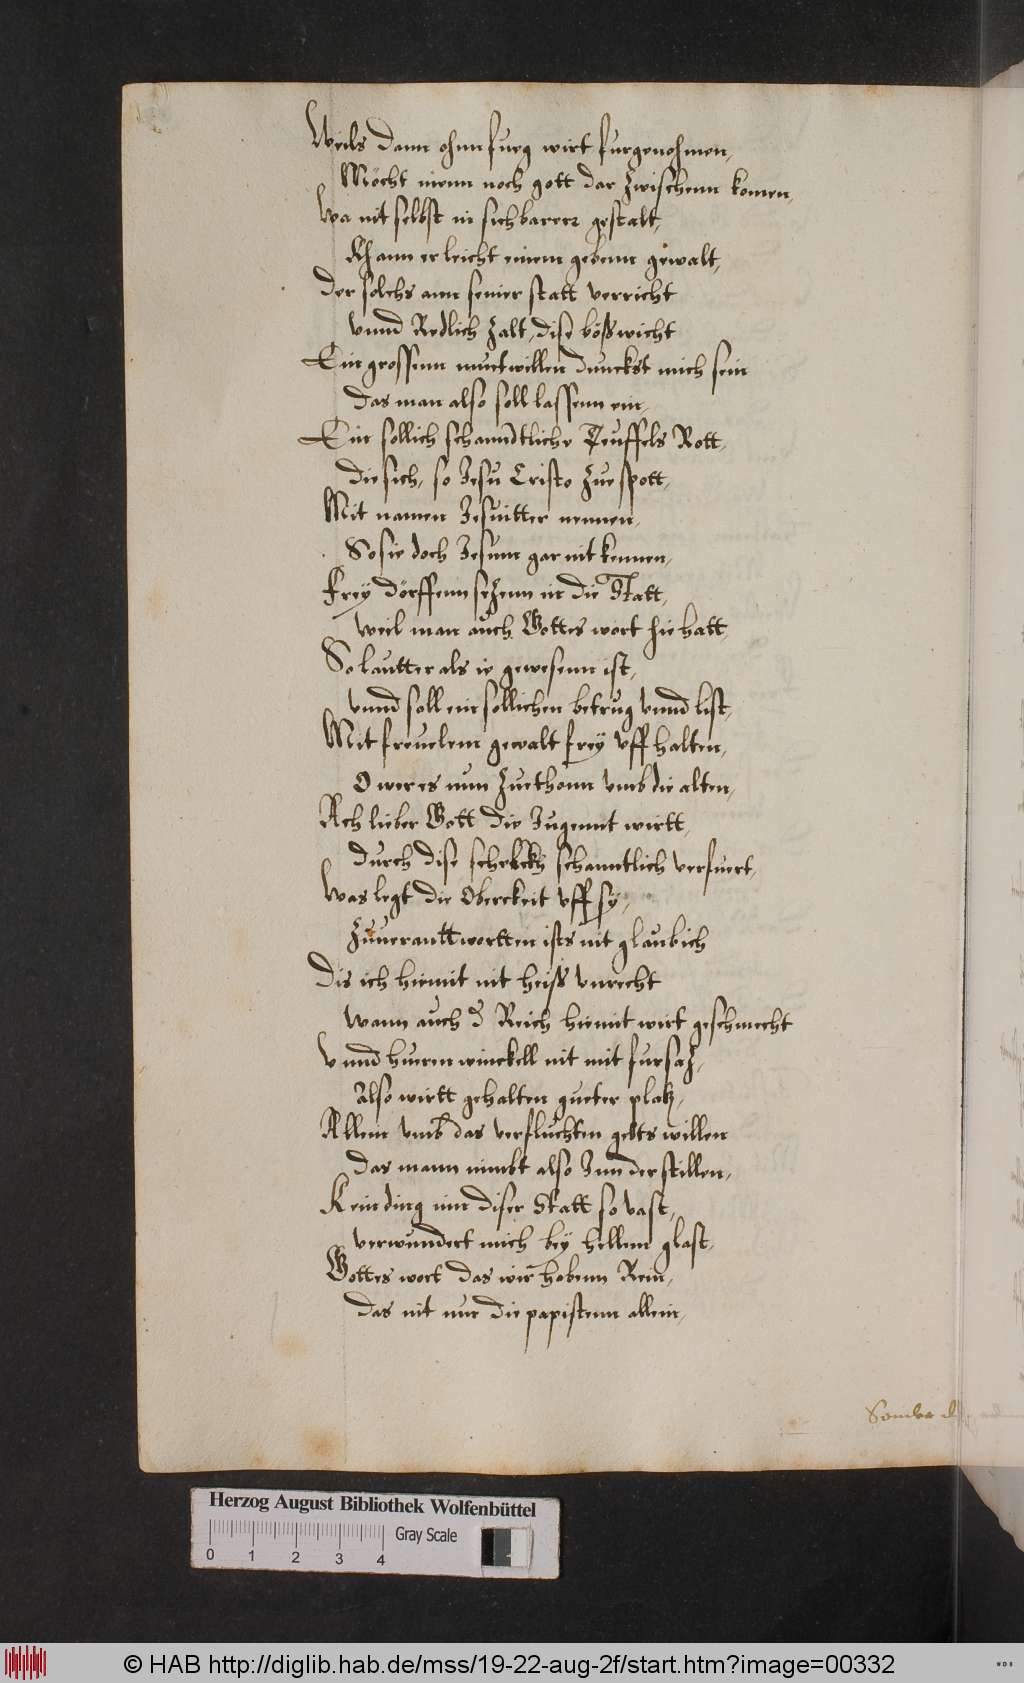 Weils dann ohnn fueg wirt furgenohmen,
Möcht nienn noch gott dar Zwischenn komen,
Wa nit selbst in sichbarerr gestalt,
Khann er leicht einem gebenn gewalt,
Der solchs ann seiner statt verricht
vnnd Redlich Zalt, dise bößwicht
Ein grossenn muetwillen dunckst mich sein
das man also soll lassenn ein,
Ein sollich schanndtliche Teuffels Rott,
die sich, so Jesu Cristo Zue spott,
Mit namen Jesuitter nennen,
So sie doch Jesum gar nit kennen,
Frey dörffenn sezenn in die Statt,
weil man auch Gottes wort hie hatt
So lautter als ie gewesenn ist,
vnnd soll ein sollichen betrug vnnd list,
Mit freuelem gewalt frey vff halten,
O wer es nun Zuethonn vmb die alten,
Ach lieber Gott die Jugennt wirtt,
durch dise schanntlich verfuert,
Was legt die Oberckeit vff sy,
Zuuerantt wortten ists nit glaublich
Dis ich hiemit nit heiß vnrecht
Wann auch d Reich hiemit wirt geschmecht
vnnd hueren winckell nit mit fursaz,
Also wirtt gehalten gueter platz,
Allein vmb das verfluchten gelts willen
Das mann nimbt also Inn der stillen,
Kein ding inn diser Statt so vast,
verwundert mich bey hellem glast,
Gottes wort das wir habenn Rein,
das nit nur die papistenn allein,
Herzog August Bibliothek Wolfenbüttel
Gray Scale
0 1 2 3 4
© HAB http://diglib.hab.de/mss/19-22-aug-2f/start.htm?image=00332